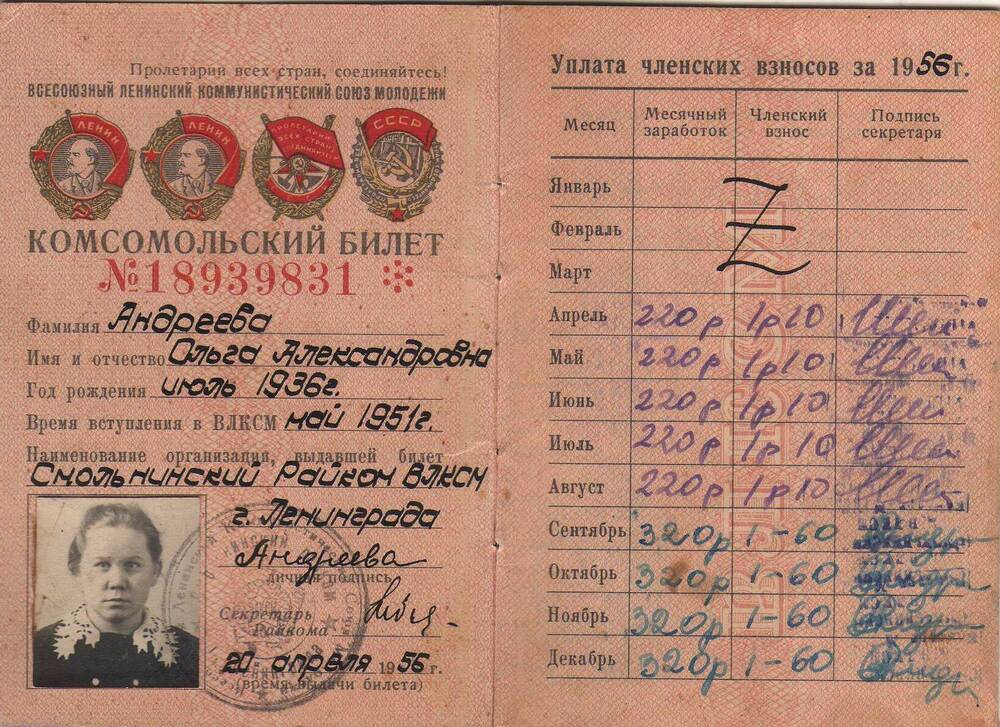 Пролетарии всех стран, соединяйтесь!
ВСЕСОЮЗНЫЙ ЛЕНИНСКИЙ КОММУНИСТИЧЕСКИЙ СОЮЗ МОЛОДЕЖИ
ЛЕНИН ЛЕНИН ПРОЛЕТАРИИ ВСЕХ СТРАН СССР
КОМСОМОЛЬСКИЙ БИЛЕТ
№18939831
Фамилия Андреева
Имя и отчество Ольга Александровна
Год рождения июль 1936г.
Время вступления в ВЛКСМ май 1951г.
Наименование организации, выдавшей билет
Смольнинский Райком ВЛКСМ
г. Ленинграда
Андреева
личная подпись
Секретарь
Райкома
20 апреля 1956 г.
(время выдачи билета)
Уплата членских взносов за 1956 г.
Месяц Месячный заработок Членский взнос Подпись секретаря
Январь
Февраль Z
Март
Апрель 220р 1р10
Май 220р 1р10
Июнь 220р 1р10
Июль 220р 1р10
Август 220р 1р10
Сентябрь 320р 1-60
Октябрь 320р 1-60
Ноябрь 320р 1-60
Декабрь 320р 1-60